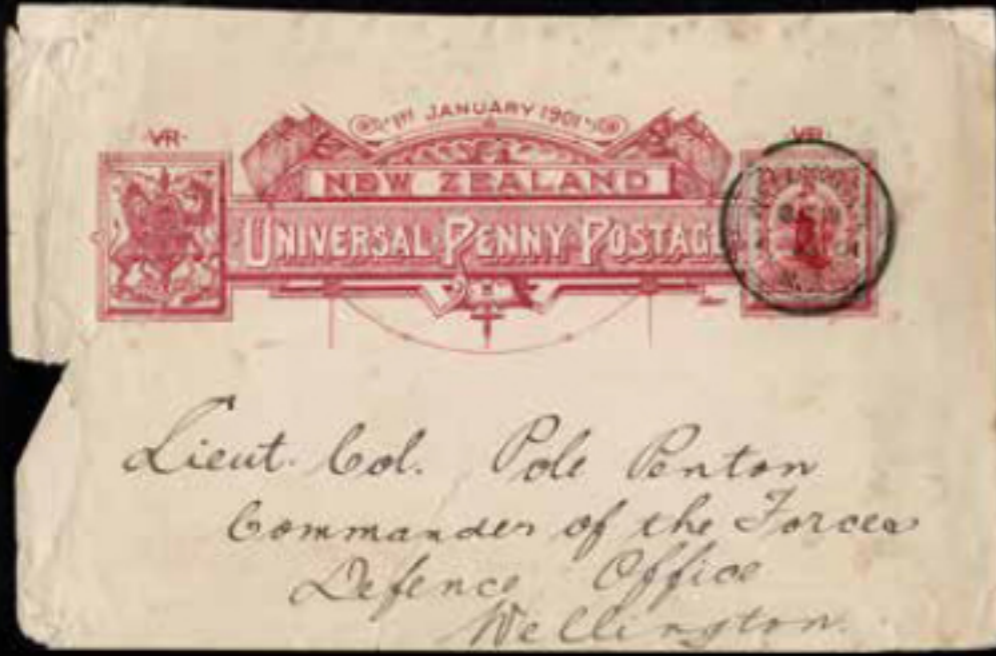 1st JANUARY 1901
VR
VR
NEW ZEALAND
UNIVERSAL PENNY POSTAGE
Lieut. Col. Pole Penton
Commander of the Forces
Defence Office
Wellington.